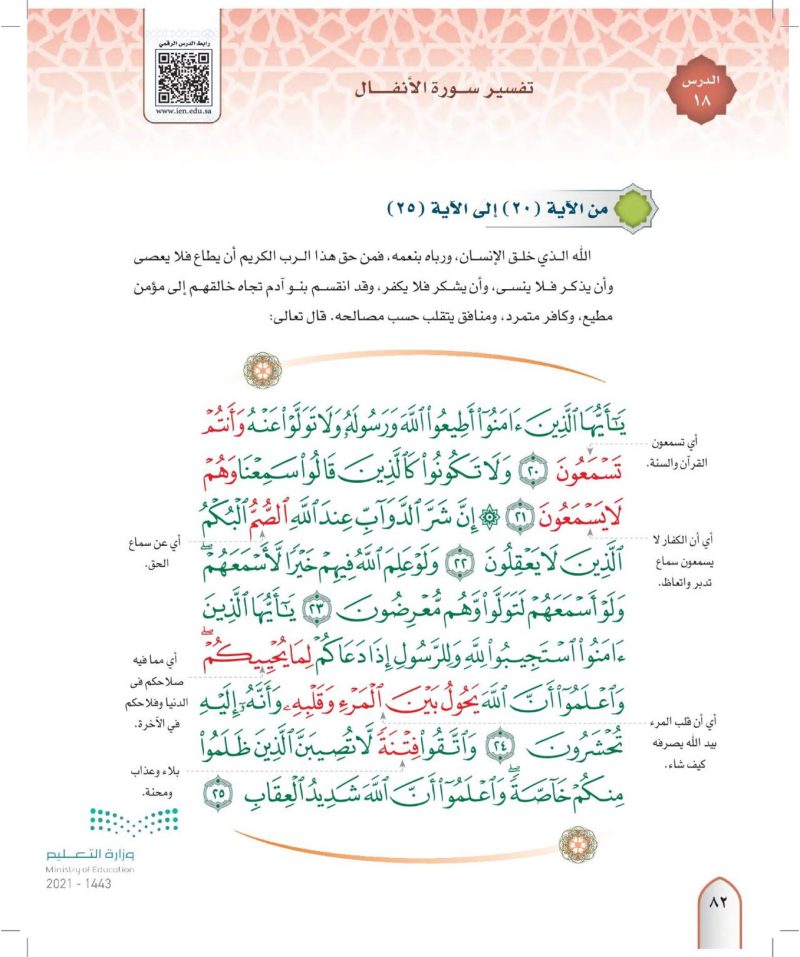 رابط الدرس الرقمي
www.ien.edu.sa
الدرس
١٨
تفسير سورة الأنفال
من الآية (٢٠) إلى الآية (٢٥)
الله الذي خلق الإنسان، ورباه بنعمه، فمن حق هذا الرب الكريم أن يطاع فلا يعصى
وأن يذكر فلا ينسى، وأن يشكر فلا يكفر، وقد انقسم بنو آدم تجاه خالقهم إلى مؤمن
مطيع، وكافر متمرد، ومنافق يتقلب حسب مصالحه. قال تعالى:
يَٰٓأَيُّهَا ٱلَّذِينَ ءَامَنُوٓاْ أَطِيعُواْ ٱللَّهَ وَرَسُولَهُۥ وَلَا تَوَلَّوۡاْ عَنۡهُ وَأَنتُمۡ
تَسۡمَعُونَ ٢٠ وَلَا تَكُونُواْ كَٱلَّذِينَ قَالُواْ سَمِعۡنَا وَهُمۡ
لَا يَسۡمَعُونَ ٢١ ۞ إِنَّ شَرَّ ٱلدَّوَآبِّ عِندَ ٱللَّهِ ٱلصُّمُّ ٱلۡبُكۡمُ
ٱلَّذِينَ لَا يَعۡقِلُونَ ٢٢ وَلَوۡ عَلِمَ ٱللَّهُ فِيهِمۡ خَيۡرٗا لَّأَسۡمَعَهُمۡۖ
وَلَوۡ أَسۡمَعَهُمۡ لَتَوَلَّواْ وَّهُم مُّعۡرِضُونَ ٢٣ يَٰٓأَيُّهَا ٱلَّذِينَ
ءَامَنُواْ ٱسۡتَجِيبُواْ لِلَّهِ وَلِلرَّسُولِ إِذَا دَعَاكُمۡ لِمَا يُحۡيِيكُمۡۖ
وَٱعۡلَمُوٓاْ أَنَّ ٱللَّهَ يَحُولُ بَيۡنَ ٱلۡمَرۡءِ وَقَلۡبِهِۦ وَأَنَّهُۥٓ إِلَيۡهِ
تُحۡشَرُونَ ٢٤ وَٱتَّقُواْ فِتۡنَةٗ لَّا تُصِيبَنَّ ٱلَّذِينَ ظَلَمُواْ
مِنكُمۡ خَآصَّةٗۖ وَٱعۡلَمُوٓاْ أَنَّ ٱللَّهَ شَدِيدُ ٱلۡعِقَابِ ٢٥
أي تسمعون
القرآن والسنة.
أي أن الكفار لا
يسمعون سماع
تدبر واتعاظ.
أي عن سماع
الحق.
أي مما فيه
صلاحكم فى
الدنيا وفلاحكم
في الآخرة.
أي أن قلب المرء
بيد الله يصرفه
كيف شاء.
بلاء وعذاب
ومحنة.
وزارة التعليم
Ministry of Education
2021 - 1443
٨٢